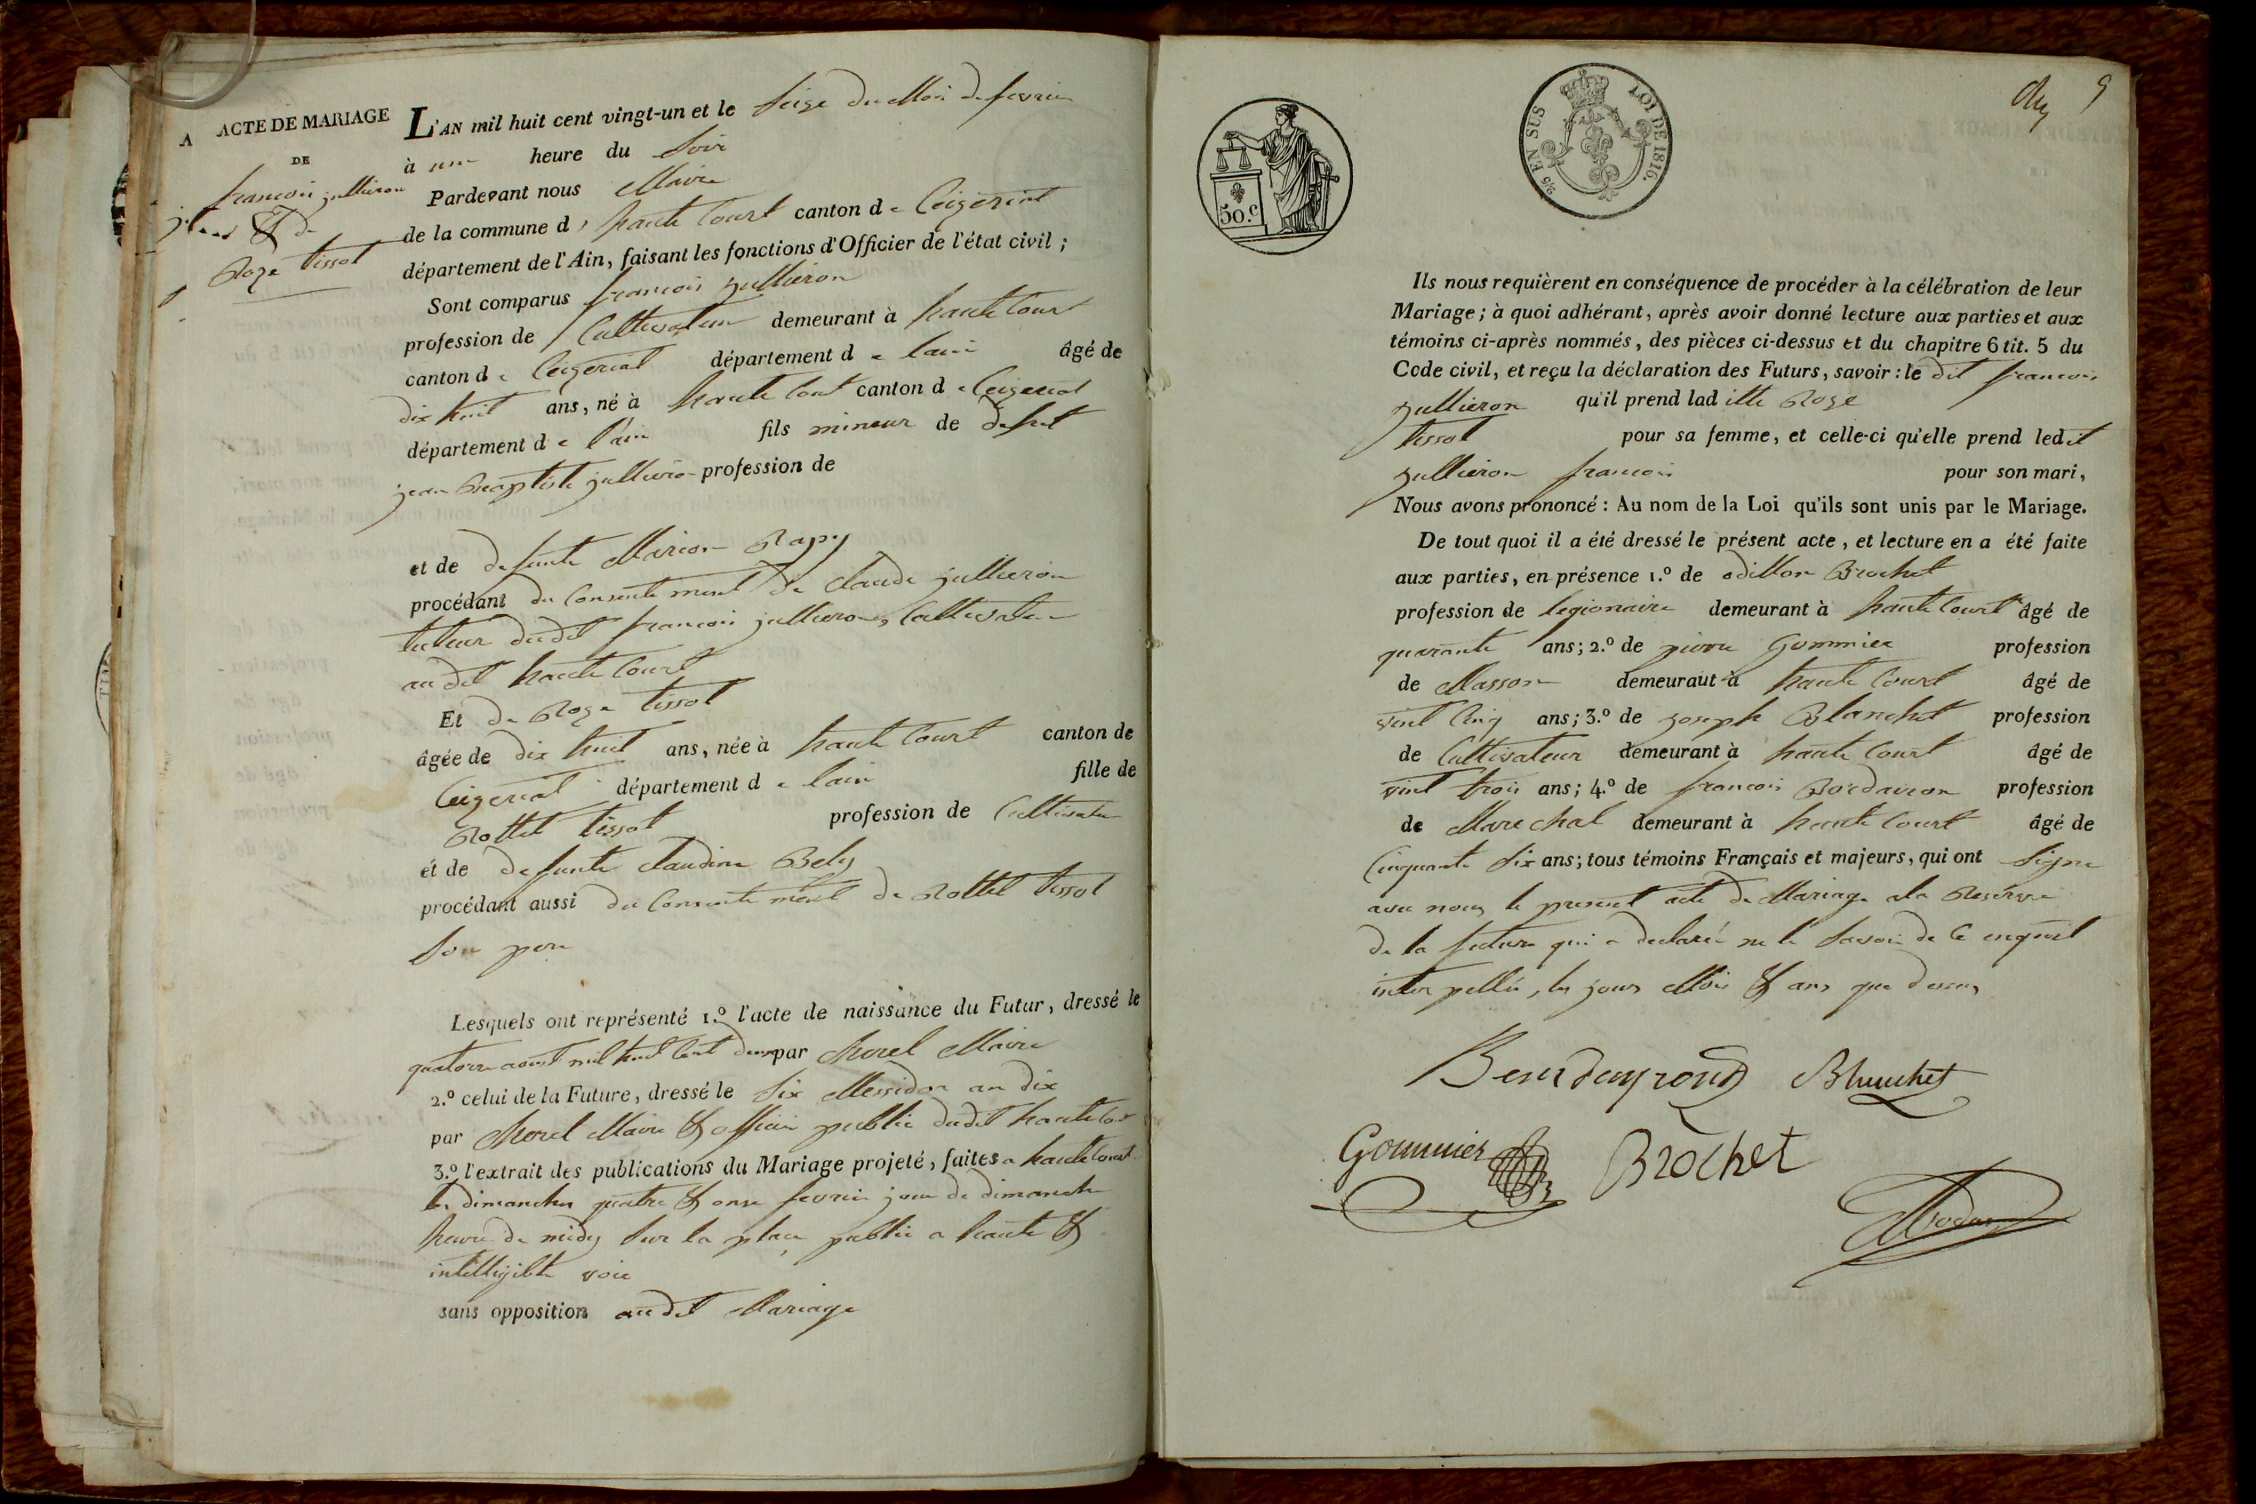 A
ACTE DE MARIAGE
DE
francois jullieron
& de
Roze tissot
L'AN mil huit cent vingt-un et le Seize du Mois de fevrier
à une heure du Soir
Pardevant nous Maire
de la commune d, haute Court canton de Ceizeriat
département de l'Ain, faisant les fonctions d'Officier de l'état civil ;
Sont comparus francois jullieron
profession de Cultivateur demeurant à haute Court
canton de Ceizeriat département de lain âgé de
dix huit ans, né à haute Court canton de Ceizeriat
département de l'ain fils mineur de defunt
jean Baptiste jullieron profession de
et de defunte Marion Rapy
procédant du Consentement de claude jullieron
tuteur dudit francois jullieron, Cultivateur
audit haute Court
Et de Roze tissot
âgée de dix huit ans, née à haute Court canton de
Ceizeriat département de lain fille de
Rottet tissot profession de Cultivateur
et de defunte claudine Bely
procédant aussi du Consentement de Rottet tissot
Son pere
Lesquels ont représenté 1.º l'acte de naissance du Futur, dressé le
quatorze aout mil huit Cent deux par Morel Maire
2.º celui de la Future, dressé le Six Messidor an dix
par Morel Maire & officier public dudit haute Court
3.º l'extrait des publications du Mariage projeté, faites a haute Court
les dimanches quatre & onze fevrier jour de dimanche
heure de midy Sur la place public a haute &
intelligible voie
sans opposition audit Mariage
9
50.C
2/5 EN SUS
LOI DE 1816.
Ils nous requièrent en conséquence de procéder à la célébration de leur
Mariage ; à quoi adhérant, après avoir donné lecture aux parties et aux
témoins ci-après nommés, des pièces ci-dessus et du chapitre 6 tit. 5 du
Code civil, et reçu la déclaration des Futurs, savoir : le dit francois
jullieron qu'il prend laditte Roze
tissot pour sa femme, et celle-ci qu'elle prend ledit
jullieron francois pour son mari,
Nous avons prononcé : Au nom de la Loi qu'ils sont unis par le Mariage.
De tout quoi il a été dressé le présent acte, et lecture en a été faite
aux parties, en présence 1.º de odillon Brochet
profession de legionaire demeurant à haute Court âgé de
quarante ans ; 2.º de pierre Gommier profession
de Masson demeurant à haute Court âgé de
vint Cinq ans ; 3.º de joseph Blanchet profession
de Cultivateur demeurant à haute Court âgé de
vint trois ans ; 4.º de francois profession
de Marechal demeurant à haute Court âgé de
Cinquante Six ans ; tous témoins Français et majeurs, qui ont Signe
avec nous le present acte de Mariage a la Reserve
de la future qui a declaré ne le Savoir de Ce enquit
interpellée, les jours Mois & ans que dessus
Blanchet
Gommier
Brochet